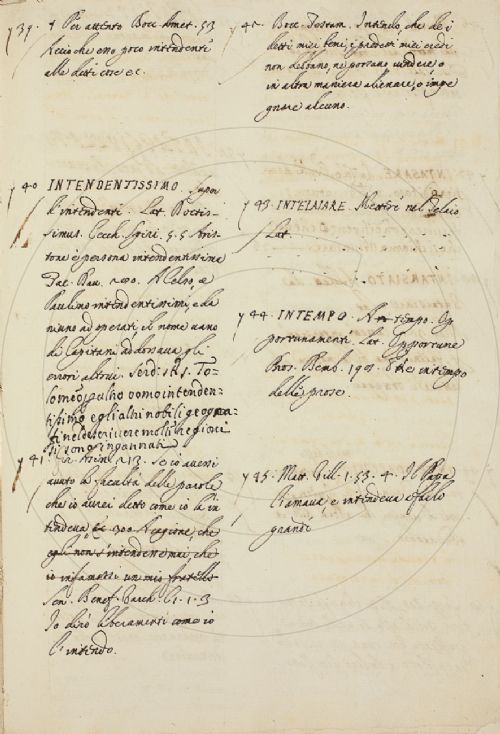 739. + Per attento Bocc. Amet. 53
Acciò che emo poco intendenti
alle dette cose ec.
740 INTENDENTISSIMO. Super
d'intendenti. Lat. Doctis-
simus. Cecch. 5. 5 Aris-
tone è persona intendentissima
Tac. Dav. A Celso, e
Paulino intendentissimi, e da
niuno adoperati, il nome vano
di Capitani adossava gli
errori altrui. Serd. To-
lomeo, pulho uomo intenden-
tissimo e gli altri nobili geogra-
fi nel descrivere molti regioni
si sono ingannati
741 213. Se io avessi
avuto la facultà delle parole
che io avrei detto come io la in
tendeva 300. Ragione, che
egli non s'intendette mai, che
io infamassi un mio fratello
Sen. Benef. Varch. 1. 3
Io dirò liberamente come io
l'intendo.
74 Bocc. Testam. Intendo, che de i
detti miei beni, i predetti miei eredi
non debbano, nè possano vendere, o
in altra maniera alienare, o impe
gnare alcuno.
743. INTELAIARE. Mettere nel telaio
Lat.
744. INTEMPO. A tempo. Op
portunamenti. Lat. Opportune
Pros. Bemb. 190. E che intempo
delle prose.
745. Matt. Vill. 1. 53. 4. Il Papa
l'amava, e intendeva a farlo
grande